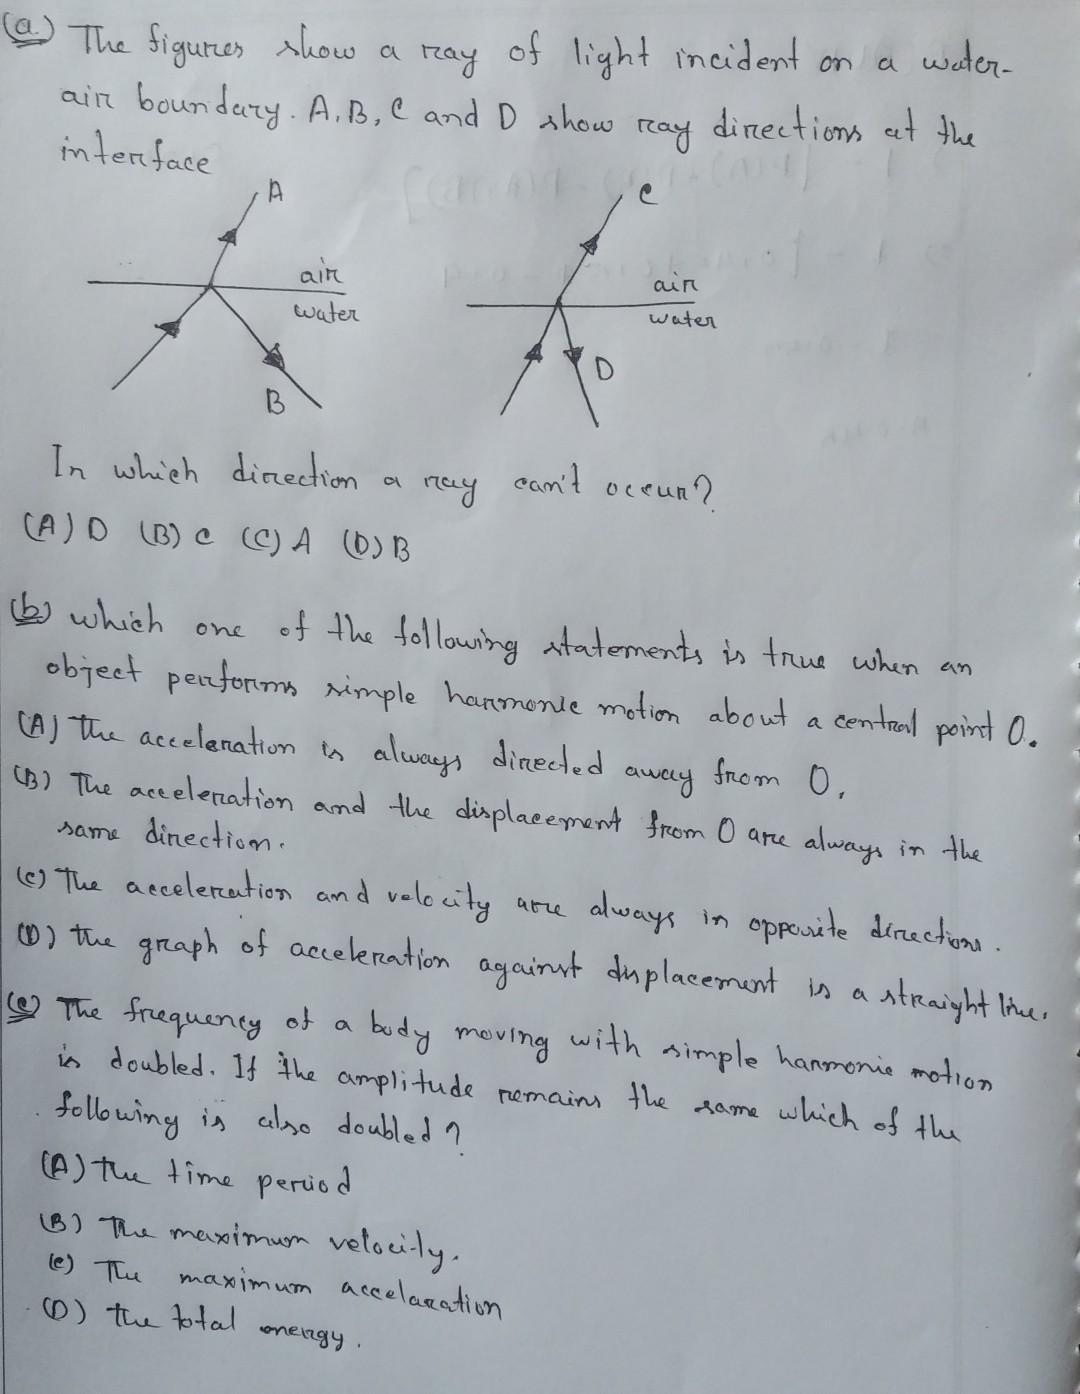 (a.) The figures show a ray of light incident on a water-
air boundary. A, B, C and D show ray directions at the
interface
A
air
water
B
C
air
water
D
In which direction a ray can't occur?
(A) D (B) C (C) A (D) B
(b) which one of the following statements is true when an
object performs simple harmonic motion about a central point O.
(A) The acceleration is always directed away from O.
(B) The acceleration and the displacement from O are always in the
same direction.
(C) The acceleration and velocity are always in opposite directions.
(D) The graph of acceleration against displacement is a straight line.
(c) The frequency of a body moving with simple harmonic motion
is doubled. If the amplitude remains the same which of the
following is also doubled?
(A) The time period
(B) The maximum velocity.
(C) The maximum accelaration
(D) The total energy.